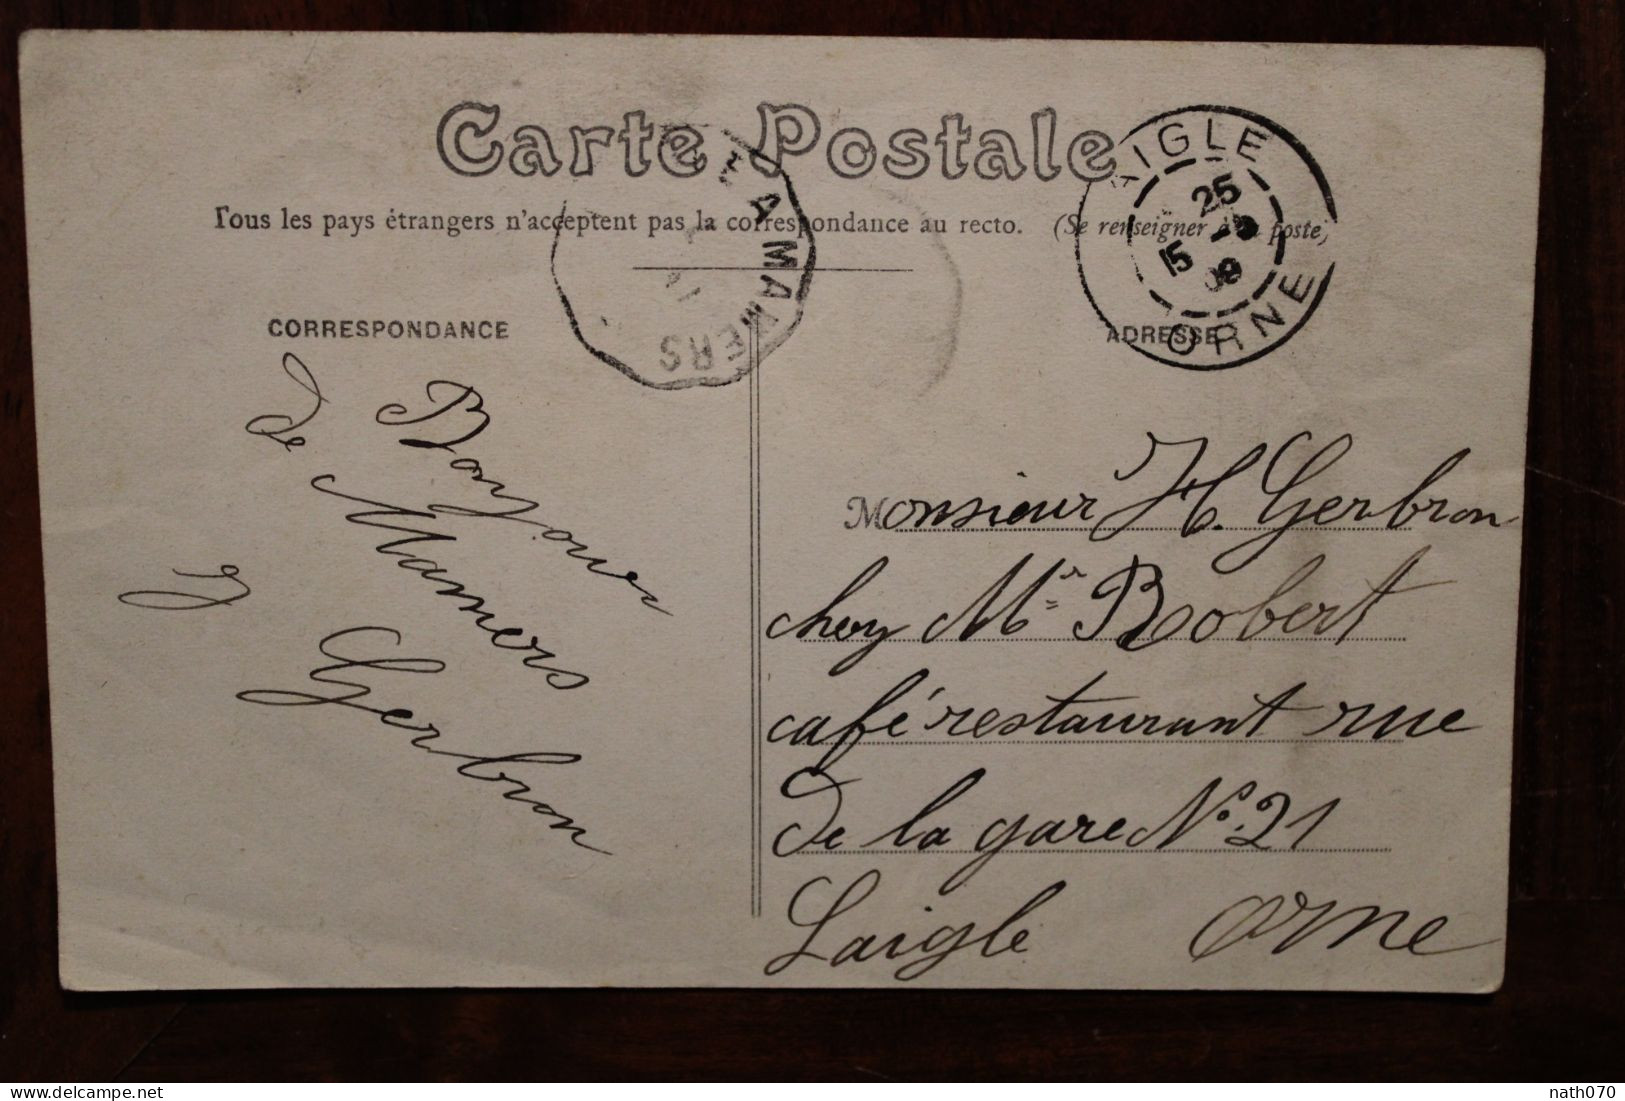 Carte Postale
Tous les pays étrangers n'acceptent pas la correspondance au recto. (Se renseigner à la poste)
CORRESPONDANCE
ADRESSE
LA MAMERS
AIGLE
25
15
09
ORNE
Bonjour
de Mamers
G Gerbron
Monsieur H. Gerbron
chez Mr Robert
café restaurant rue
De la gare No. 21
Laigle Orne
nath070